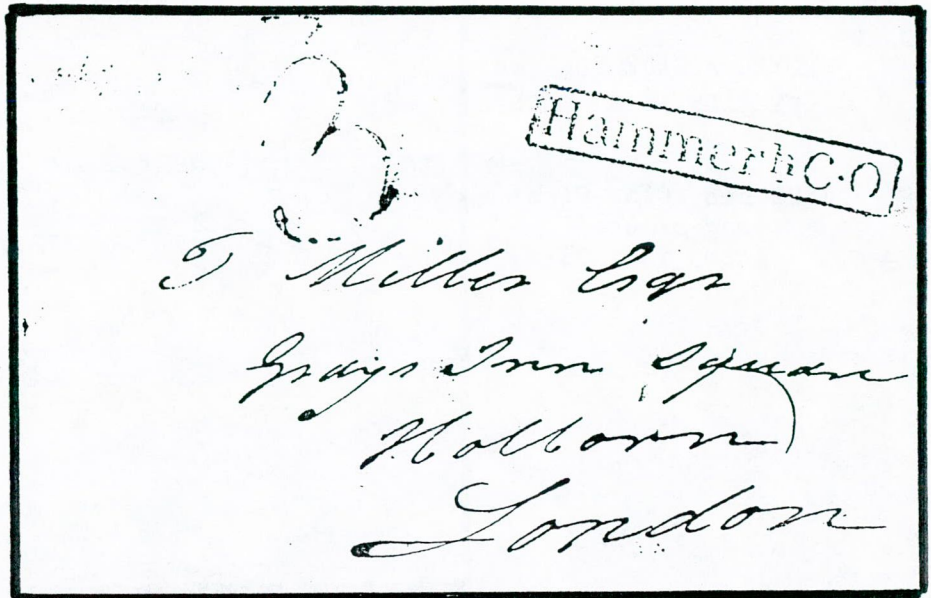 3
Hammerh C·O
T Miller Esqr
Grays Inn Square
Holborn
London